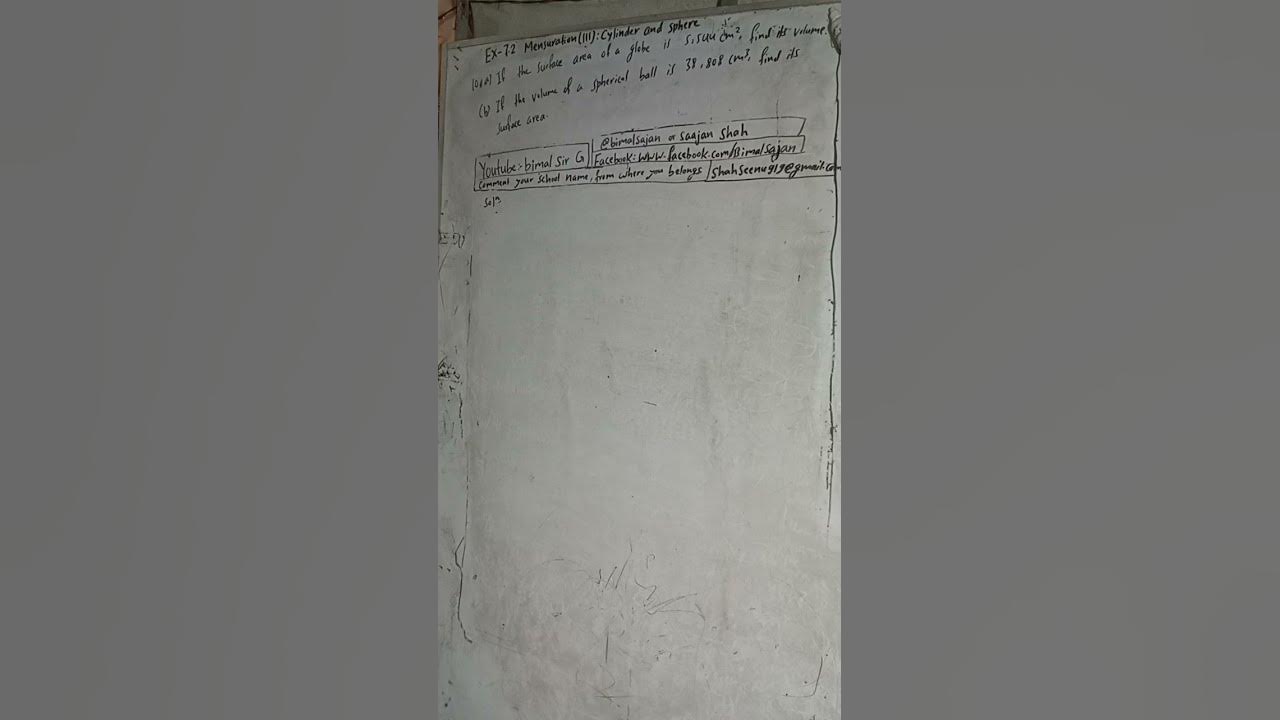 Ex-7.2 Mensuration(III): Cylinder and sphere
10.a) If the surface area of a globe is 5,544 cm², find its volume.
(b) If the volume of a spherical ball is 38,808 cm³, find its
surface area.
@bimalsajan or Saajan Shah
Youtube:- bimal Sir G
Facebook: www.facebook.com/Bimalsajan
Comment your school name, from where you belongs
shahseenu919@gmail.com
Solⁿ